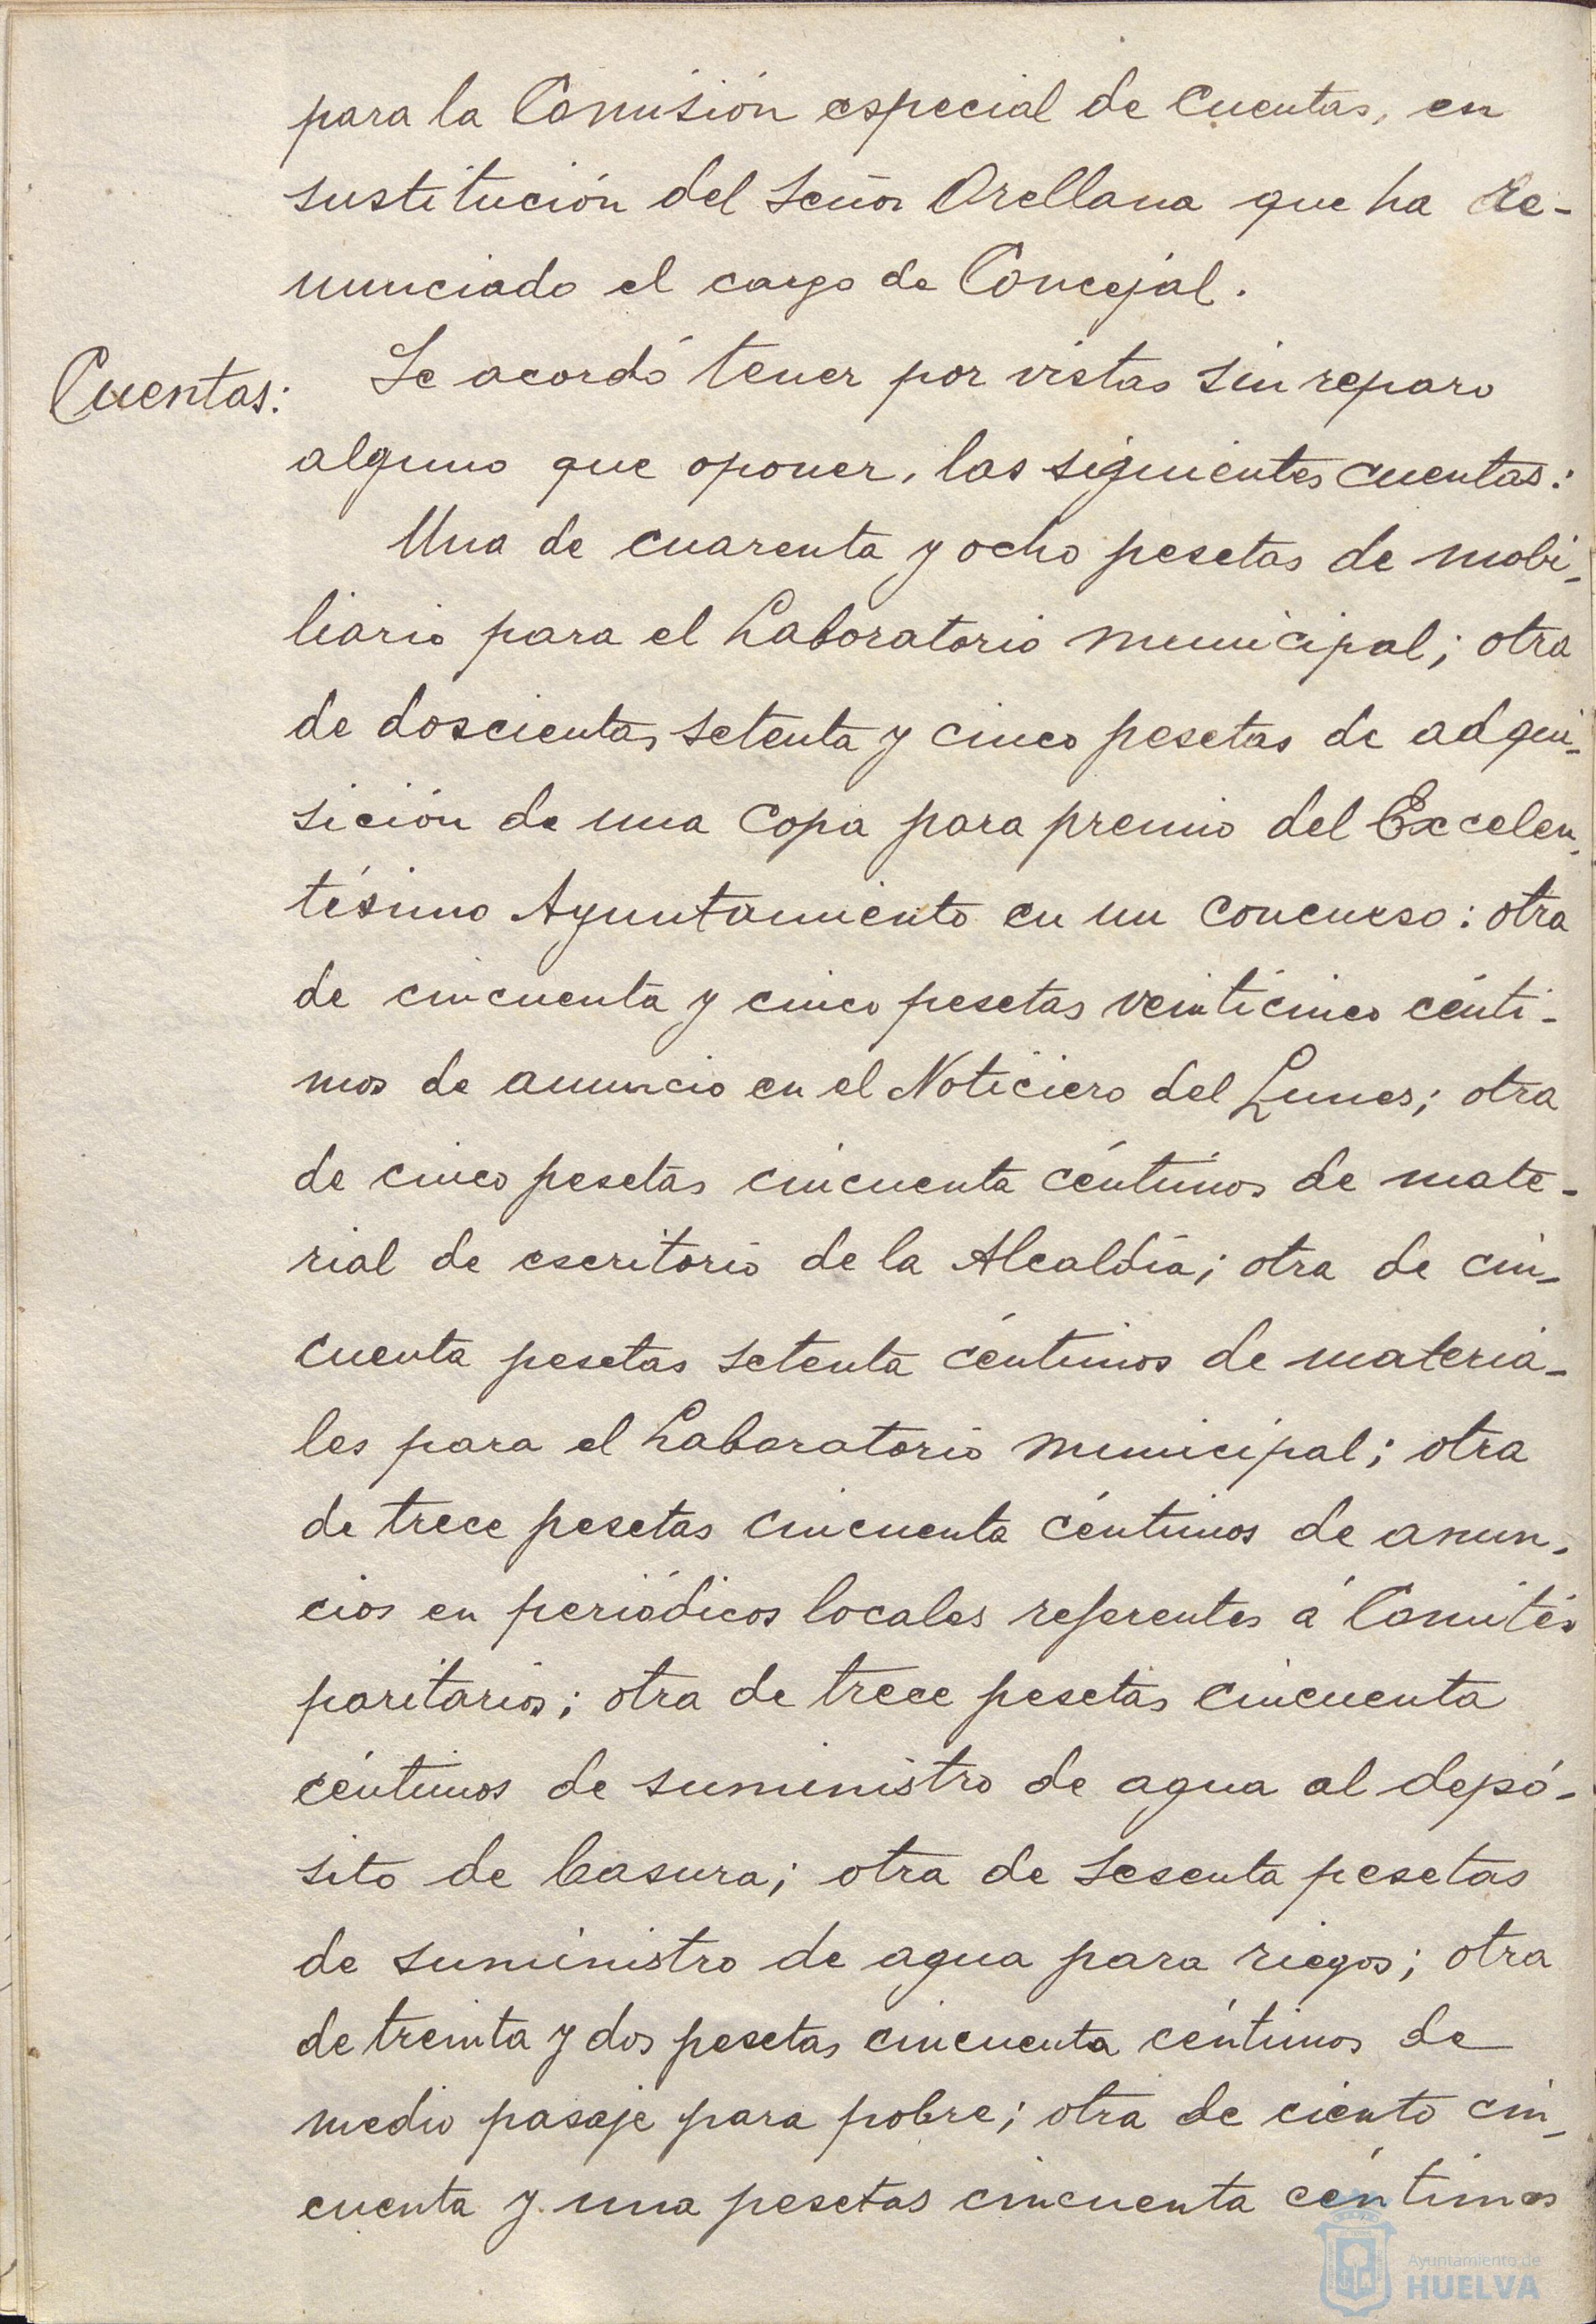 para la Comisión especial de Cuentas, en
sustitución del Señor Orellana que ha re-
nunciado el cargo de Concejal.
Cuentas:
Se acordó tener por vistas sin reparo
alguno que oponer, las siguientes cuentas:
Una de cuarenta y ocho pesetas de mobi-
liario para el Laboratorio municipal; otra
de doscientas setenta y cinco pesetas de adqui-
sición de una Copa para premio del Excelen-
tésimo Ayuntamiento en un concurso: otra
de cincuenta y cinco pesetas veinticinco cénti-
mos de anuncio en el Noticiero del Lunes; otra
de cinco pesetas cincuenta céntimos de mate-
rial de escritorio de la Alcaldía; otra de cin-
cuenta pesetas setenta céntimos de materia-
les para el Laboratorio municipal; otra
de trece pesetas cincuenta céntimos de anun-
cios en periódicos locales referentes á Comités
paritarios; otra de trece pesetas cincuenta
céntimos de suministro de agua al depó-
sito de basura; otra de sesenta pesetas
de suministro de agua para riegos; otra
de treinta y dos pesetas cincuenta céntimos de
medio pasaje para pobre; otra de ciento cin-
cuenta y una pesetas cincuenta céntimos
Ayuntamiento de
HUELVA